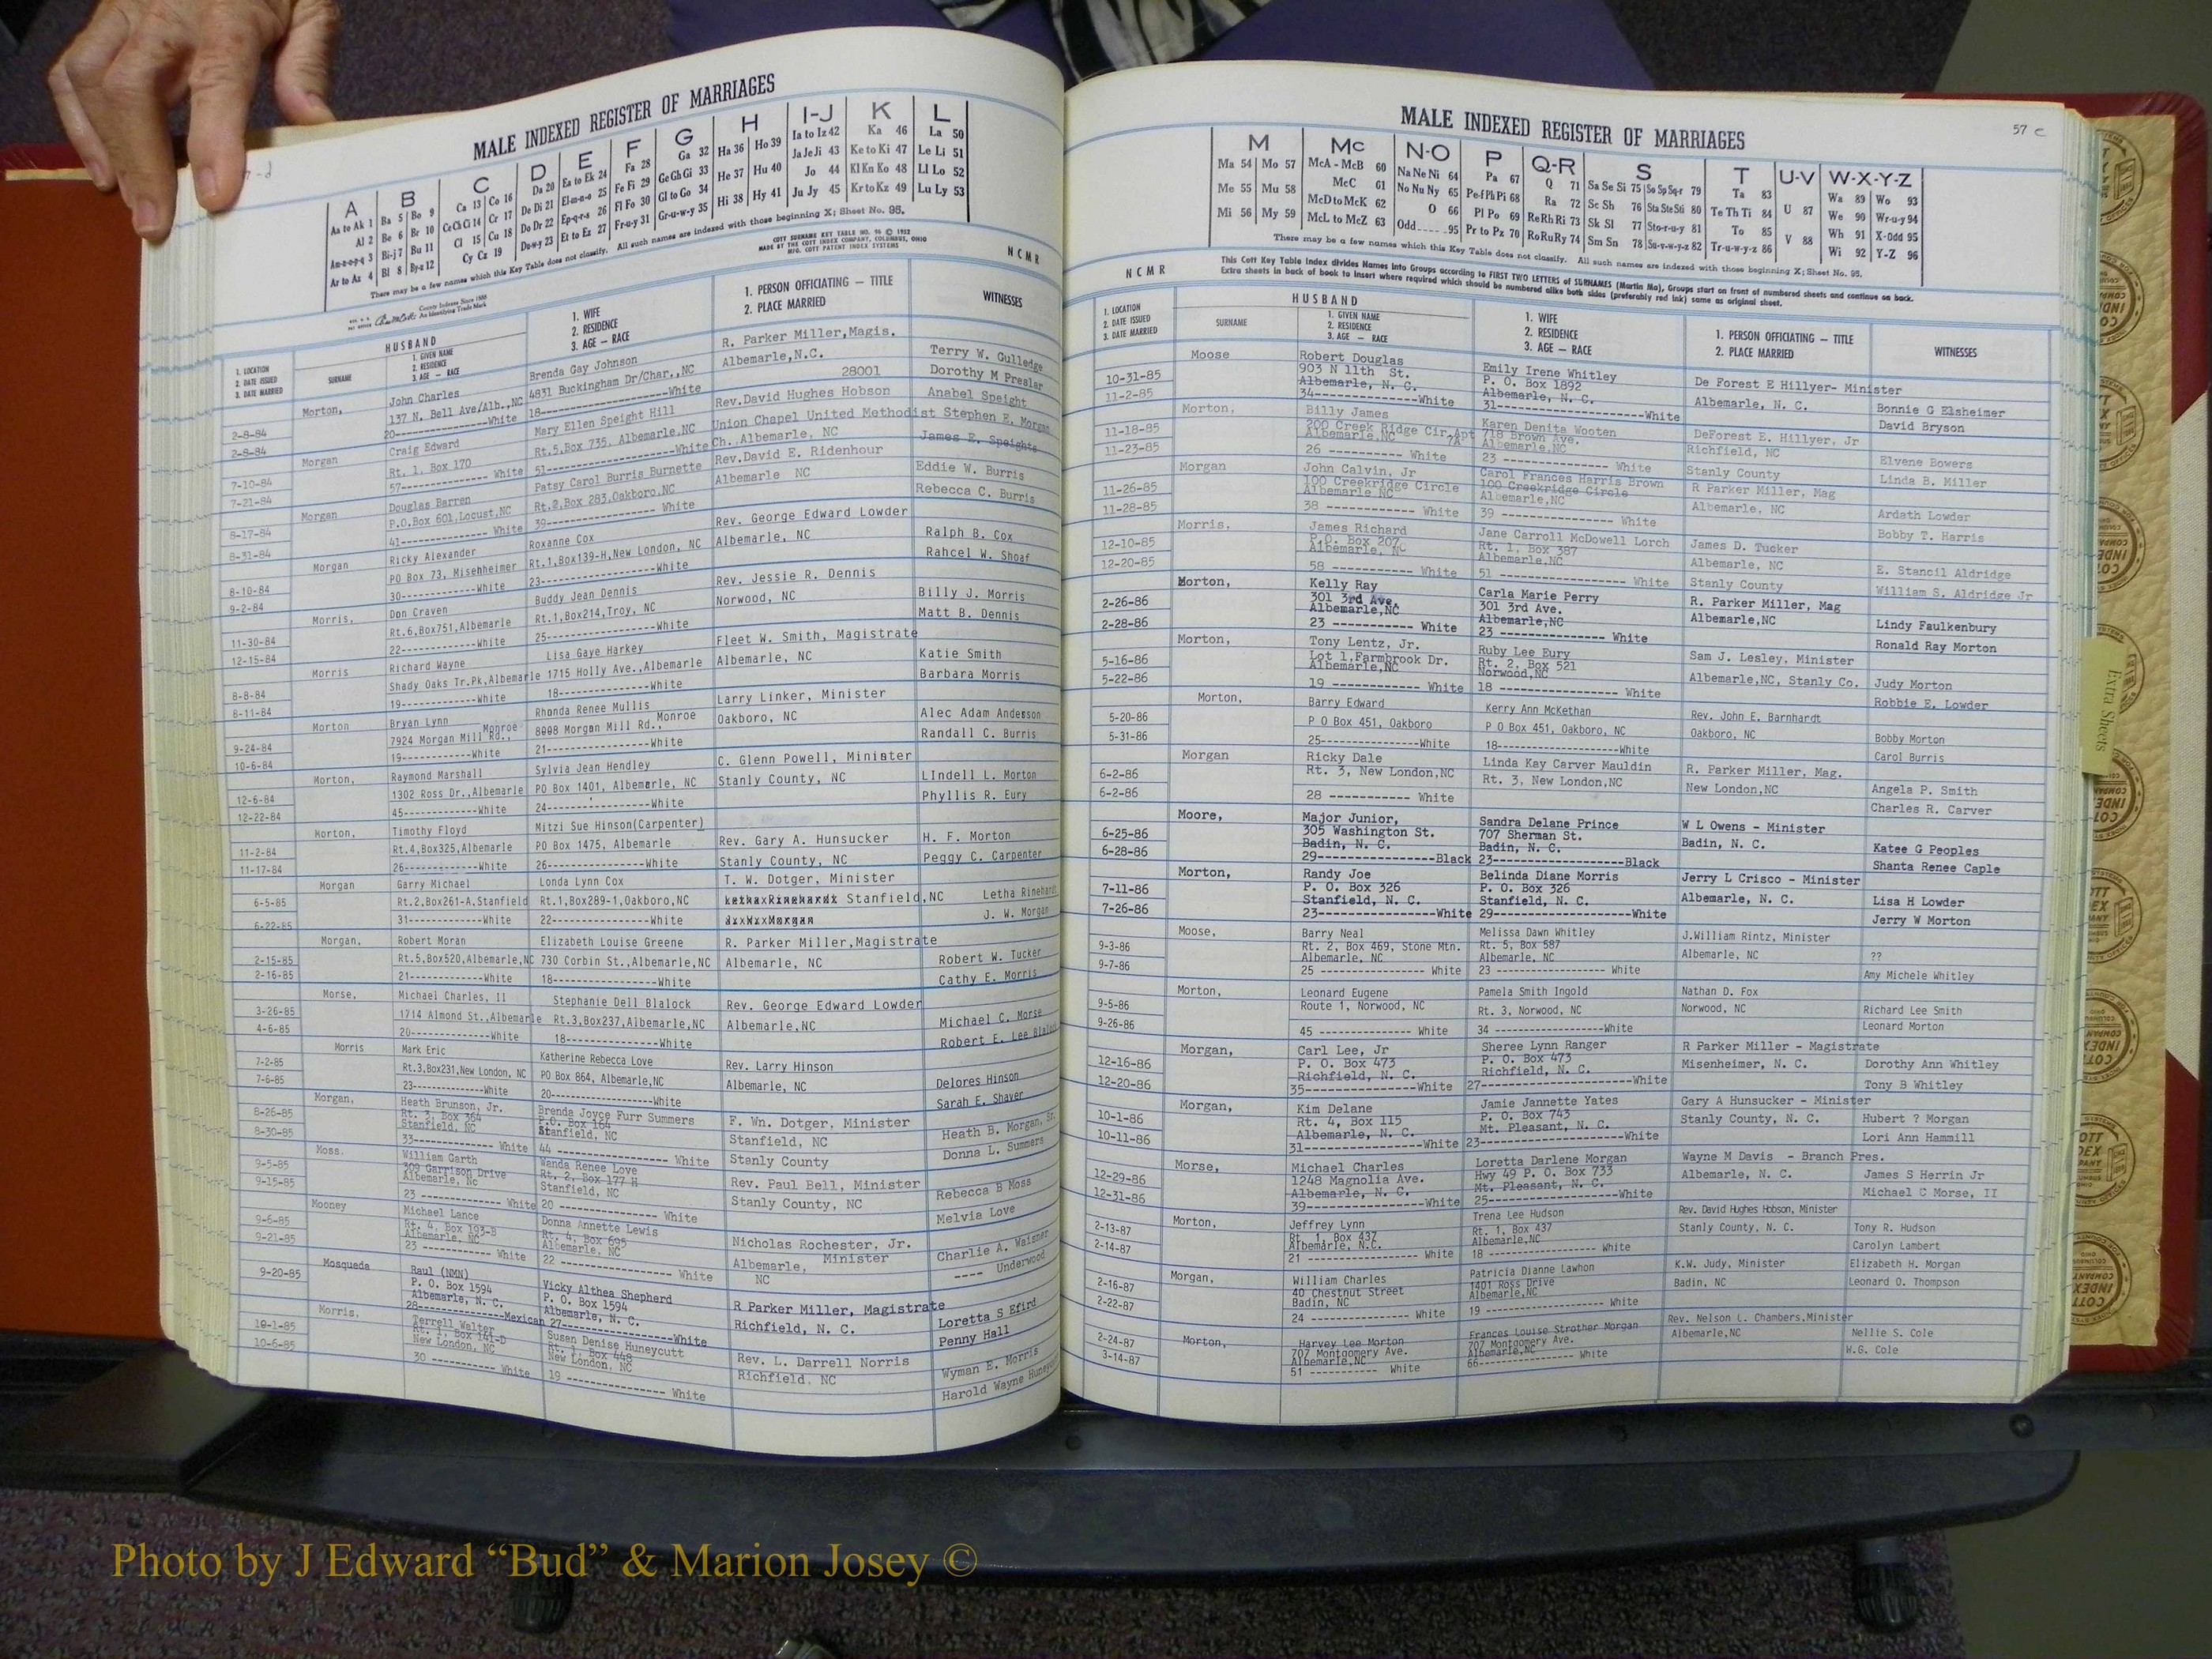 MALE INDEXED REGISTER OF MARRIAGES
A B C D E F G H I-J K L
Aa to Ak 1 Ba 5 Bo 9 Ca 13 Co 16 Da 20 Ea to Ek 24 Fa 28 Ga 32 Ha 36 Ho 39 Ia to Iz 42 Ka 46 La 50
Al 2 Be 6 Br 10 Ce Ch Ci 14 Cr 17 De Di 21 El-m-n-o 25 Fe Fi 29 Ge Gh Gi 33 He 37 Hu 40 Ja Je Ji 43 Ke to Ki 47 Le Li 51
Am-n-o-p-q 3 Bi-j 7 Bu 11 Cl 15 Cu 18 Do Dr 22 Ep-q-r-s 26 Fl Fo 30 Gl to Go 34 Hi 38 Hy 41 Jo 44 Kl Kn Ko 48 Ll Lo 52
Ar to Az 4 Bl 8 By-z 12 Cy Cz 19 Du-w-y 23 Et to Ez 27 Fr-u-y 31 Gr-u-w-y 35 Ju Jy 45 Kr to Kz 49 Lu Ly 53
There may be a few names which this Key Table does not classify. All such names are indexed with those beginning X; Sheet No. 95.
COTT SURNAME KEY TABLE NO. 96 © 1952
MADE BY THE COTT INDEX COMPANY, COLUMBUS, OHIO
MFG. COTT PATENT INDEX SYSTEMS
County Indexes Since 1888
An Identifying Trade Mark
N C M R
1. LOCATION 2. DATE ISSUED 3. DATE MARRIED
HUSBAND
SURNAME
1. GIVEN NAME 2. RESIDENCE 3. AGE — RACE
1. WIFE 2. RESIDENCE 3. AGE — RACE
1. PERSON OFFICIATING — TITLE 2. PLACE MARRIED
WITNESSES
Morton, John Charles Brenda Gay Johnson R. Parker Miller,Magis. Terry W. Gulledge
2-8-84 137 N. Bell Ave/Alb.,NC 4831 Buckingham Dr/Char.,NC Albemarle,N.C. 28001 Dorothy M Preslar
2-8-84 20---White 18---White
Morgan Craig Edward Mary Ellen Speight Hill Rev.David Hughes Hobson Anabel Speight
7-10-84 Rt. 1, Box 170 Rt.5,Box 735, Albemarle,NC Union Chapel United Methodist Stephen E. Morgan
7-21-84 57---White 51---White Ch.,Albemarle, NC James E. Speights
Morgan Douglas Barren Patsy Carol Burris Burnette Rev.David E. Ridenhour Eddie W. Burris
8-17-84 P.O.Box 601,Locust,NC Rt.2,Box 283,Oakboro,NC Albemarle NC Rebecca C. Burris
8-31-84 41---White 39---White
Morgan Ricky Alexander Roxanne Cox Rev. George Edward Lowder Ralph B. Cox
8-10-84 PO Box 73, Misenheimer Rt.1,Box139-H,New London, NC Albemarle, NC Rahcel W. Shoaf
9-2-84 30---White 23---White
Morris, Don Craven Buddy Jean Dennis Rev. Jessie R. Dennis Billy J. Morris
11-30-84 Rt.6,Box751,Albemarle Rt.1,Box214,Troy, NC Norwood, NC Matt B. Dennis
12-15-84 22---White 25---White
Morris Richard Wayne Lisa Gaye Harkey Fleet W. Smith, Magistrate Katie Smith
8-8-84 Shady Oaks Tr.Pk,Albemarle 1715 Holly Ave.,Albemarle Albemarle, NC Barbara Morris
8-11-84 19---White 18---White
Morton Bryan Lynn Rhonda Renee Mullis Larry Linker, Minister Alec Adam Anderson
9-24-84 7924 Morgan Mill Rd., Monroe 8008 Morgan Mill Rd., Monroe Oakboro, NC Randall C. Burris
10-6-84 19---White 21---White
Morton, Raymond Marshall Sylvia Jean Hendley C. Glenn Powell, Minister LIndell L. Morton
12-6-84 1302 Ross Dr.,Albemarle PO Box 1401, Albemarle, NC Stanly County, NC Phyllis R. Eury
12-22-84 45---White 24---White
Morton, Timothy Floyd Mitzi Sue Hinson(Carpenter) Rev. Gary A. Hunsucker H. F. Morton
11-2-84 Rt.4,Box325,Albemarle PO Box 1475, Albemarle Stanly County, NC Peggy C. Carpenter
11-17-84 26---White 26---White
Morgan Garry Michael Londa Lynn Cox T. W. Dotger, Minister Letha Rinehardt
6-5-85 Rt.2,Box261-A,Stanfield Rt.1,Box289-1,Oakboro,NC Stanfield,NC J. W. Morgan
6-22-85 31---White 22---White
Morgan, Robert Moran Elizabeth Louise Greene R. Parker Miller,Magistrate Robert W. Tucker
2-15-85 Rt.5,Box520,Albemarle,NC 730 Corbin St.,Albemarle,NC Albemarle, NC Cathy E. Morris
2-16-85 21---White 18---White
Morse, Michael Charles, II Stephanie Dell Blalock Rev. George Edward Lowder Michael C. Morse
3-26-85 1714 Almond St.,Albemarle Rt.3,Box237,Albemarle,NC Albemarle,NC Robert E. Lee Blalock
4-6-85 20---White 18---White
Morris Mark Eric Katherine Rebecca Love Rev. Larry Hinson Delores Hinson
7-2-85 Rt.3,Box231,New London, NC PO Box 864, Albemarle,NC Albemarle, NC Sarah E. Shaver
7-6-85 23---White 20---White
Morgan, Heath Brunson, Jr. Brenda Joyce Furr Summers F. Wn. Dotger, Minister Heath B. Morgan, Sr.
8-26-85 Rt. 3, Box 364 Stanfield, NC P.O. Box 164 Stanfield, NC Stanfield, NC Donna L. Summers
8-30-85 33---White 44---White Stanly County
Moss. William Garth Wanda Renee Love Rev. Paul Bell, Minister Rebecca B Moss
9-5-85 309 Garrison Drive Albemarle, Nc Rt. 2, Box 177 H Stanfield, NC Stanly County, NC Melvia Love
9-15-85 23---White 20---White
Mooney Michael Lance Donna Annette Lewis Nicholas Rochester, Jr. Minister Charlie A. Waisner
9-6-85 Rt. 4, Box 193-B Albemarle, NC Rt. 4, Box 695 Albemarle, NC Albemarle, NC ---- Underwood
9-21-85 23---White 22---White
Mosqueda Raul (NMN) Vicky Althea Shepherd R Parker Miller, Magistrate Loretta S Efird
9-20-85 P. O. Box 1594 Albemarle, N. C. P. O. Box 1594 Albemarle, N. C. Richfield, N. C. Penny Hall
28---Mexican 27---White
Morris, Terrell Walter Susan Denise Huneycutt Rev. L. Darrell Norris Wyman E. Morris
10-1-85 Rt. 1, Box 141-D New London, NC Rt. 1, Box 448 New London, NC Richfield. NC Harold Wayne
10-6-85 30---White 19---White
MALE INDEXED REGISTER OF MARRIAGES
57 c
M Mc N-O P Q-R S T U-V W-X-Y-Z
Ma 54 Mo 57 McA - McB 60 Na Ne Ni 64 Pa 67 Q 71 Sa Se Si 75 So Sp Sq-r 79 Ta 83 Wa 89 Wo 93
Me 55 Mu 58 McC 61 No Nu Ny 65 Pe-f Ph Pi 68 Ra 72 Sc Sh 76 Sta Ste Sti 80 Te Th Ti 84 U 87 We 90 Wr-u-y 94
Mi 56 My 59 McD to McK 62 O 66 Pl Po 69 Re Rh Ri 73 Sk Sl 77 Sto-r-u-y 81 To 85 Wh 91 X-Odd 95
McL to McZ 63 Odd 95 Pr to Pz 70 Ro Ru Ry 74 Sm Sn 78 Su-v-w-y-z 82 Tr-u-w-y-z 86 V 88 Wi 92 Y-Z 96
There may be a few names which this Key Table does not classify. All such names are indexed with those beginning X; Sheet No. 95.
This Cott Key Table Index divides Names into Groups according to FIRST TWO LETTERS of SURNAMES (Martin Ma), Groups start on front of numbered sheets and continue on back.
Extra sheets in back of book to insert where required which should be numbered alike both sides (preferably red ink) same as original sheet.
N C M R
1. LOCATION 2. DATE ISSUED 3. DATE MARRIED
HUSBAND
SURNAME
1. GIVEN NAME 2. RESIDENCE 3. AGE — RACE
1. WIFE 2. RESIDENCE 3. AGE — RACE
1. PERSON OFFICIATING — TITLE 2. PLACE MARRIED
WITNESSES
Moose Robert Douglas Emily Irene Whitley De Forest E Hillyer- Minister Bonnie G Elsheimer
10-31-85 903 N 11th St. Albemarle, N. C. P. O. Box 1892 Albemarle, N. C. Albemarle, N. C. David Bryson
11-2-85 34---White 31---White
Morton, Billy James Karen Denita Wooten DeForest E. Hillyer, Jr Elvene Bowers
11-18-85 200 Creek Ridge Cir,Apt 7A Albemarle,NC 718 Brown Ave. Albemarle,NC Richfield, NC Linda B. Miller
11-23-85 26---White 23---White Stanly County
Morgan John Calvin, Jr Carol Frances Harris Brown R Parker Miller, Mag Ardeth Lowder
11-26-85 100 Creekridge Circle Albemarle NC 100 Creekridge Circle Albemarle,NC Albemarle, NC Bobby T. Harris
11-28-85 38---White 39---White
Morris, James Richard Jane Carroll McDowell Lorch James D. Tucker E. Stancil Aldridge
12-10-85 P.O. Box 207 Albemarle, NC Rt. 1, Box 387 Albemarle,NC Albemarle, NC William S. Aldridge Jr
12-20-85 58---White 51---White Stanly County
Morton, Kelly Ray Carla Marie Perry R. Parker Miller, Mag Lindy Faulkenbury
2-26-86 301 3rd Ave. Albemarle,NC 301 3rd Ave. Albemarle,NC Albemarle,NC Ronald Ray Morton
2-28-86 23---White 23---White
Morton, Tony Lentz, Jr. Ruby Lee Eury Sam J. Lesley, Minister Judy Morton
5-16-86 Lot 1,Farmbrook Dr. Albemarle,NC Rt. 2, Box 521 Norwood,NC Albemarle,NC, Stanly Co. Robbie E. Lowder
5-22-86 19---White 18---White
Morton, Barry Edward Kerry Ann McKethan Rev. John E. Barnhardt Bobby Morton
5-20-86 P O Box 451, Oakboro P O Box 451, Oakboro, NC Oakboro, NC Carol Burris
5-31-86 25---White 18---White
Morgan Ricky Dale Linda Kay Carver Mauldin R. Parker Miller, Mag. Angela P. Smith
6-2-86 Rt. 3, New London,NC Rt. 3, New London,NC New London,NC Charles R. Carver
6-2-86 28---White
Moore, Major Junior, Sandra Delane Prince W L Owens - Minister Katee G Peoples
6-25-86 305 Washington St. Badin, N. C. 707 Sherman St. Badin, N. C. Badin, N. C. Shanta Renee Caple
6-28-86 29---Black 23---Black
Morton, Randy Joe Belinda Diane Morris Jerry L Crisco - Minister Lisa H Lowder
7-11-86 P. O. Box 326 Stanfield, N. C. P. O. Box 326 Stanfield, N. C. Albemarle, N. C. Jerry W Morton
7-26-86 23---White 29---White
Moose, Barry Neal Melissa Dawn Whitley J.William Rintz, Minister ??
9-3-86 Rt. 2, Box 469, Stone Mtn. Albemarle, NC Rt. 5, Box 587 Albemarle, NC Albemarle, NC Amy Michele Whitley
9-7-86 25---White 23---White
Morton, Leonard Eugene Pamela Smith Ingold Nathan D. Fox Richard Lee Smith
9-5-86 Route 1, Norwood, NC Rt. 3, Norwood, NC Norwood, NC Leonard Morton
9-26-86 45---White 34---White
Morgan, Carl Lee, Jr Sheree Lynn Ranger R Parker Miller - Magistrate Dorothy Ann Whitley
12-16-86 P. O. Box 473 Richfield, N. C. P. O. Box 473 Richfield, N. C. Misenheimer, N. C. Tony B Whitley
12-20-86 35---White 27---White
Morgan, Kim Delane Jamie Jannette Yates Gary A Hunsucker - Minister Hubert ? Morgan
10-1-86 Rt. 4, Box 115 Albemarle, N. C. P. O. Box 743 Mt. Pleasant, N. C. Stanly County, N. C. Lori Ann Hammill
10-11-86 31---White 23---White
Morse, Michael Charles Loretta Darlene Morgan Wayne M Davis - Branch Pres. James S Herrin Jr
12-29-86 1248 Magnolia Ave. Albemarle, N. C. Hwy 49 P. O. Box 733 Mt. Pleasant, N. C. Albemarle, N. C. Michael C Morse, II
12-31-86 39---White 25---White
Morton, Jeffrey Lynn Trena Lee Hudson Rev. David Hughes Hobson, Minister Tony R. Hudson
2-13-87 Rt. 1, Box 437 Albemarle, N.C. Rt. 1, Box 437 Albemarle,NC Stanly County, N. C. Carolyn Lambert
2-14-87 21---White 18---White
Morgan, William Charles Patricia Dianne Lawhon K.W. Judy, Minister Elizabeth H. Morgan
2-16-87 40 Chestnut Street Badin, NC 1401 Ross Drive Albemarle,NC Badin, NC Leonard O. Thompson
2-22-87 24---White 19---White
Morton, Harvey Lee Morton Frances Louise Strother Morgan Rev. Nelson L. Chambers,Minister Nellie S. Cole
2-24-87 707 Montgomery Ave. Albemarle,NC 707 Montgomery Ave. Albemarle,NC Albemarle,NC W.G. Cole
3-14-87 51---White 66---White
Extra Sheets
Photo by J Edward “Bud” & Marion Josey ©